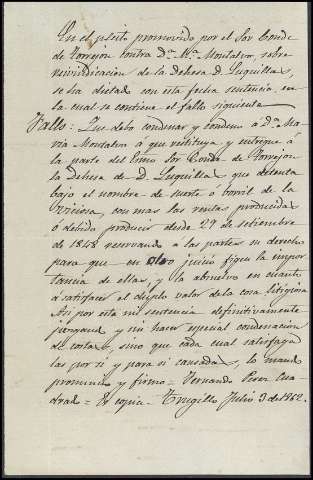 En el pleito promovido por el Sor Conde
de Torrejon contra Dª Mª Montalvo, sobre
reivindicacion de la dehesa de Luquillas,
se ha dictado con esta fecha sentencia, en
la cual se contiene el fallo siguiente
Fallo: Que debo condenar y condeno á Dª Ma
ria Montalvo á que restituya y entregue á
la parte del Exmo Sor Conde de Torrejon
la dehesa de Luquillas que detenta
bajo el nombre de suerte ó borril de la
Viciosa, con mas las rentas producidas
ó debido producir desde 29 de Setiembre
de 1848 reservando á las partes su derecho
para que en otro juicio fijen la impor
tancia de ellas, y la absuelvo en cuanto
á satisfacer el duplo valor de la cosa litigiosa
Asi por esta mi sentencia definitivamente
juzgando y sin hacer especial condenacion
de costas, sino que cada cual satisfaga
las por si y para si causadas, lo mando
pronuncio y firmo = Fernando Perez Cua
drado = Es copia = Trugillo Julio 3 de 1862.